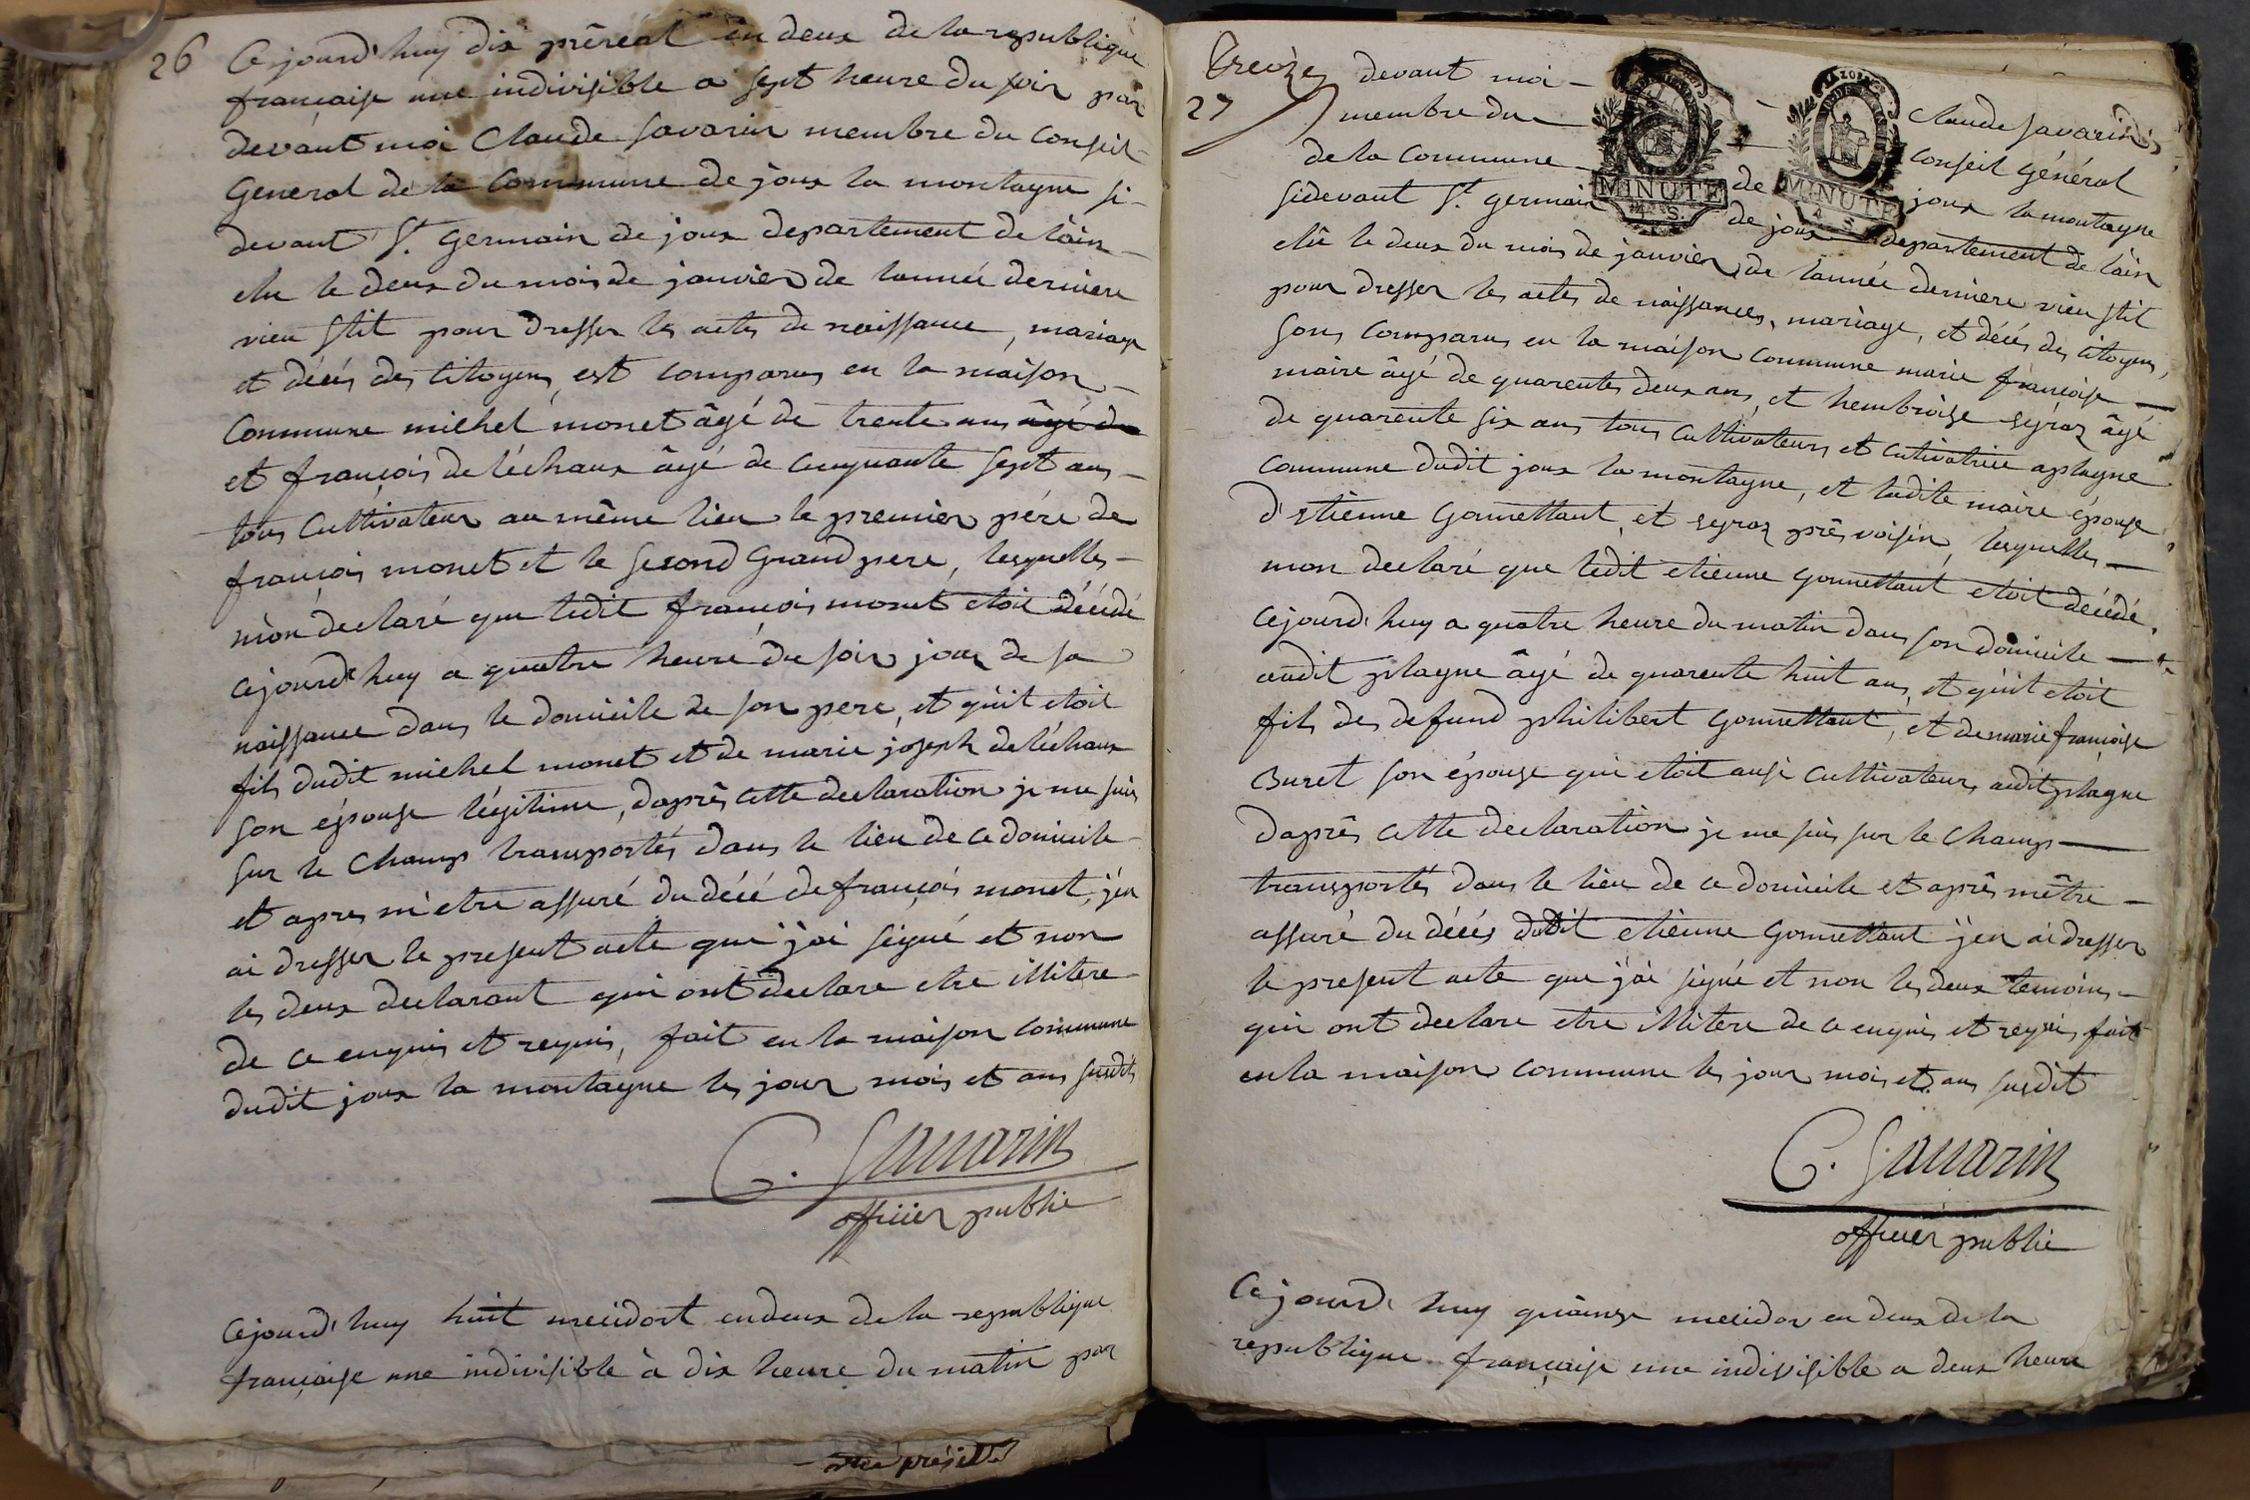 26
Cejourd'huy dix prêréal en deux de la republique
française une indivisible a sept heure du soir par
devant moi Claude Savarin membre du Conseil
General de la Commune de joux la montagne si-
devant St. Germain de joux departement de lain
elu le deux du mois de janvier de lannée derniere
vieu stil pour dresser les actes de naissance, mariage
et décés des Citoyens est comparus en la maison
Commune michel monet âgé de trente ans âgé de
et françois deléchaux âgé de cinquante sept ans
tous Cultivateur au même lieu le premier pére de
françois monet et le second Grand pere, lesquelles
m'on declaré que ledit françois monet etoit décédé
cejourd'huy a quatre heure du soir jour de sa
naissance dans le domicile de son pere, et quit etoit
fils dudit michel monet et de marie joseph deléchaux
son épouse légitime, daprês cette declaration je me suis
sur le Champ transportés dans le lieu de ce domicile
et apres m'etre assuré du décé de françois monet, j'en
ai dresser le present acte que j'ai signé et non
les deux declarant qui ont declare etre illitere
de ce enquis et requis, fait en la maison commune
dudit joux la montagne les jour mois et ans susdits
C. Savarin
officier public
Cejourd'huy huit mecidort en deux de la republique
française une indivisible à dix heure du matin par
27
devant moi Claude Savarin
membre du Conseil général
de la Commune de joux la montagne
sidevant St. germain de joux departement de lain
elû le deux du mois de janvier de lannée derniere vieu stil
pour dresser les actes de naissances, mariage, et décés des citoyens,
sons comparus en la maison commune marie françoise
maire âgé de quarente deux ans, et hembroise seyraz âgé
de quarente six ans tous Cultivateurs et cutivatrice aplagne
Commune dudit joux la montagne, et ladite maire épouse
d'etienne Gonnettant et seyraz prês voisin, lesquelles
mon declaré que ledit etienne gonnettant etoit décédé
cejourd'huy a quatre heure du matin dans son domicile
audit plagne âgé de quarente huit ans, et quit etoit
fils des defund philibert Gonnettant, et de marie françoise
Buret son épouse qui etoit ausi Cultivateurs audit plagne
daprês cette declaration je me suis sur le Champ
transportés dans le lieu de ce domicile et aprês mêtre
assuré du décés dudit etienne Gonnettant j'en ai dresser
le present acte que j'ai signé et non les deux temoins
qui ont declare etre illitere de ce enquis et requis, fait
en la maison commune les jour mois et ans susdit
C. Savarin
officier public
Cejourd'huy quinze mecidor en deux de la
republique française une indivisible a deux heure
MINUTE
MINUTE